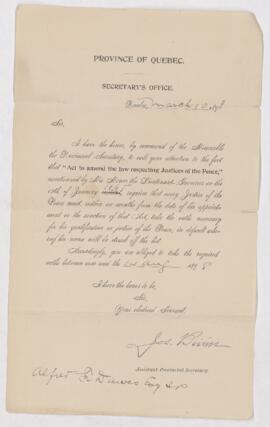 PROVINCE OF QUEBEC.
SECRETARY'S OFFICE.
Quebec, March 1898
Sir,
I have the honor, by command of the Honorable
the Provincial Secretary, to call your attention to the fact
that "Act to amend the law respecting Justices of the Peace,"
sanctioned by His Honor the Lieutenant Governor on the
of January requires that every Justice of
the Peace must, within six months from the date of his appointment
or the sanction of that Act, take the oaths necessary
for his qualification as justice of the Peace, in default where-
of his name will be struck off the list.
Accordingly, you are obliged to take the required
oaths between now and the Aug 1898
I have the honor to be,
Sir,
Your obedient Servant.
Jos.
Assistant Provincial Secretary.
Alfred Dawes Esq J.P